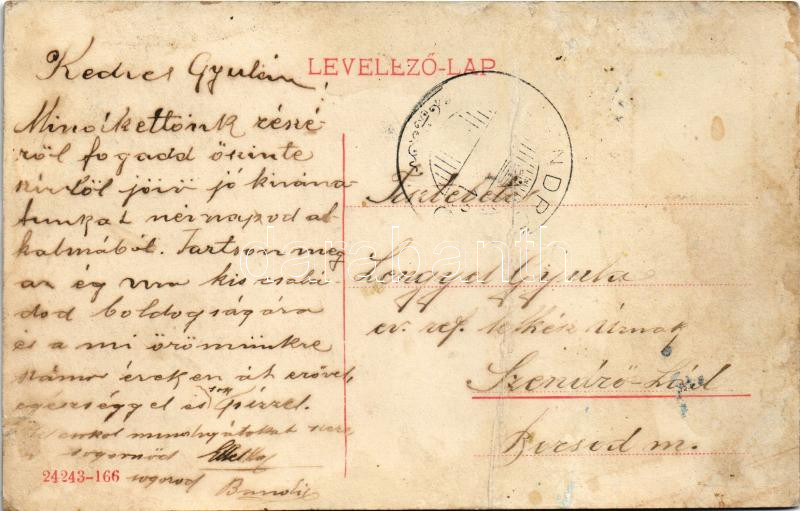 LEVELEZŐ-LAP
Kedves Gyulám!
Mindkettőnk részé-
ről fogadd őszinte
szivből jövő jó kivána-
tunkat névnapod al-
kalmából. Tartson meg
az ég kis csalá-
dod boldogságára
és a mi örömünkre
számos éveken át erővel,
egészséggel és sok pénzzel.
csokol mindnyájatokat
sogornőd
sogorod
24243-166
NDR
Tiszteletes
Lengyel Gyula
ev. ref. lelkész Úrnak
Szendrő-Lád
Borsod m.
darabanth